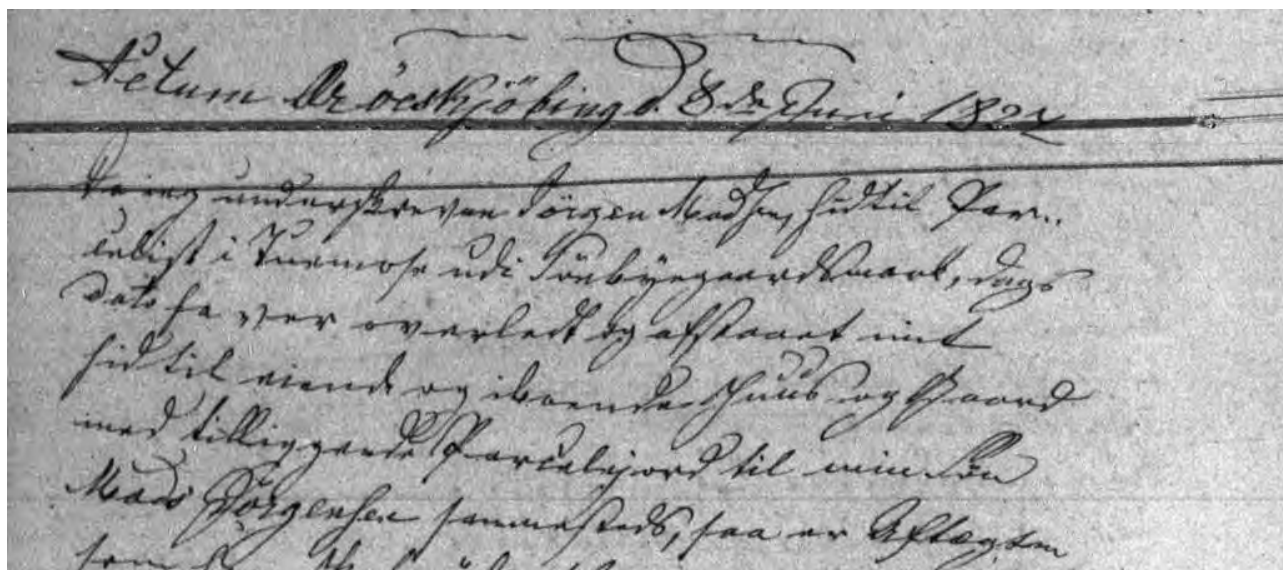 Actum Æröeskjöbing d. 8de Juni 1824
Da jeg underskreven Jörgen Madsen, hidtil Par-
celist i Tuemose udi Söebyegaardsmark, dags
dato haver overladt og afstaaet mit
hidtil eiende og iboende Huus og Gaard
med tilliggende Parcelejord til min Sön
Mads Jörgensen sammesteds, saa er Aftægten
som